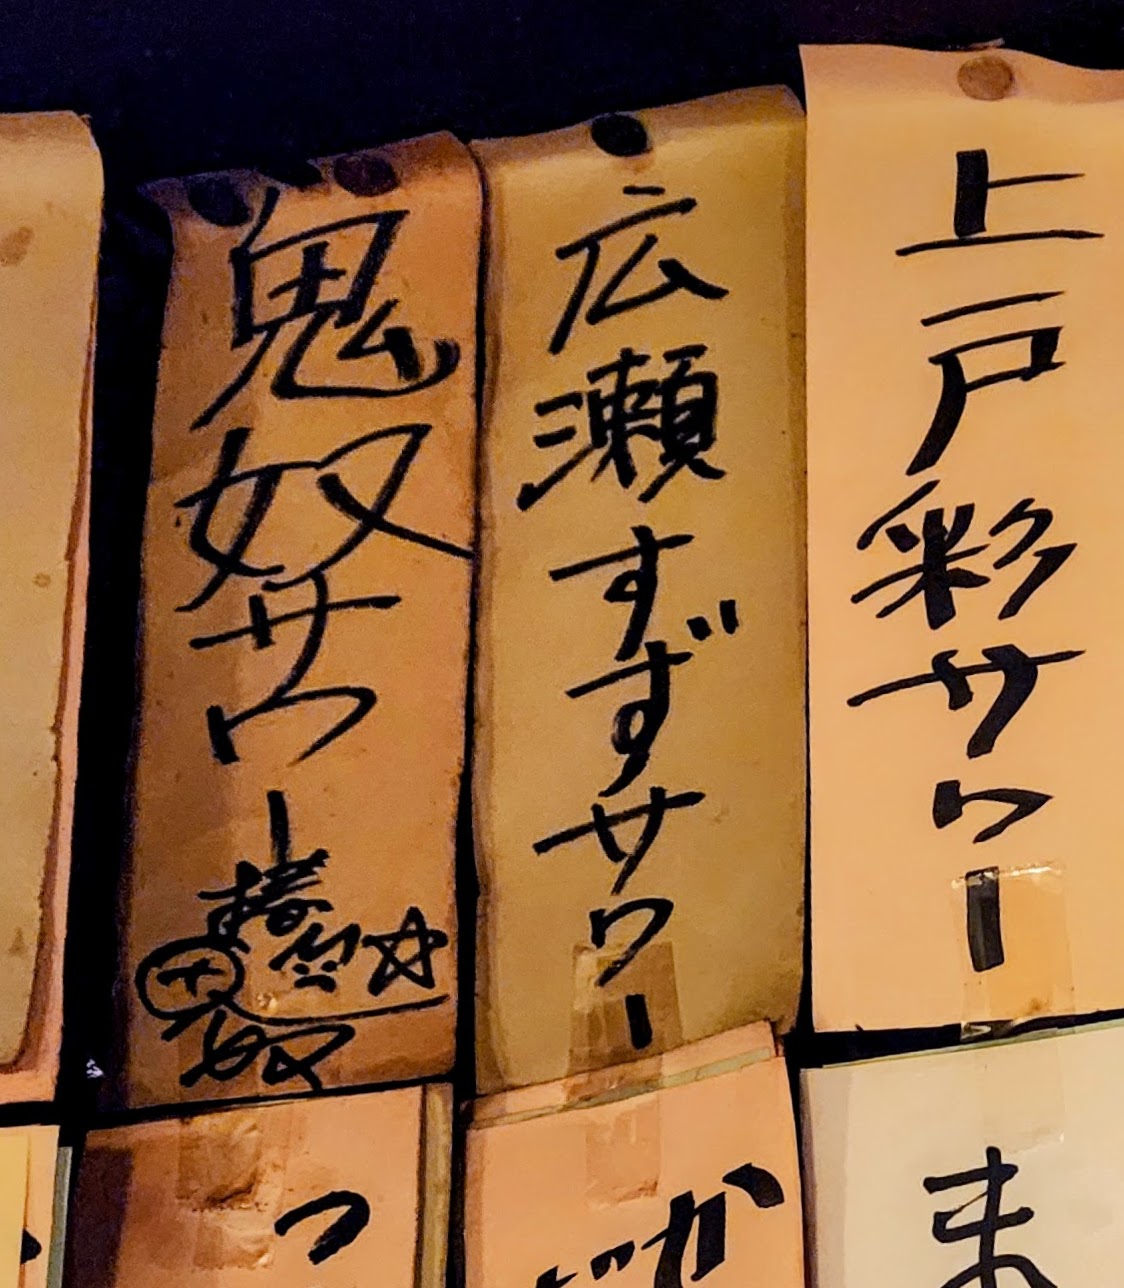 上戸彩サワー
広瀬すずサワー
鬼奴サワー
椿
鬼奴
ま
か
っ